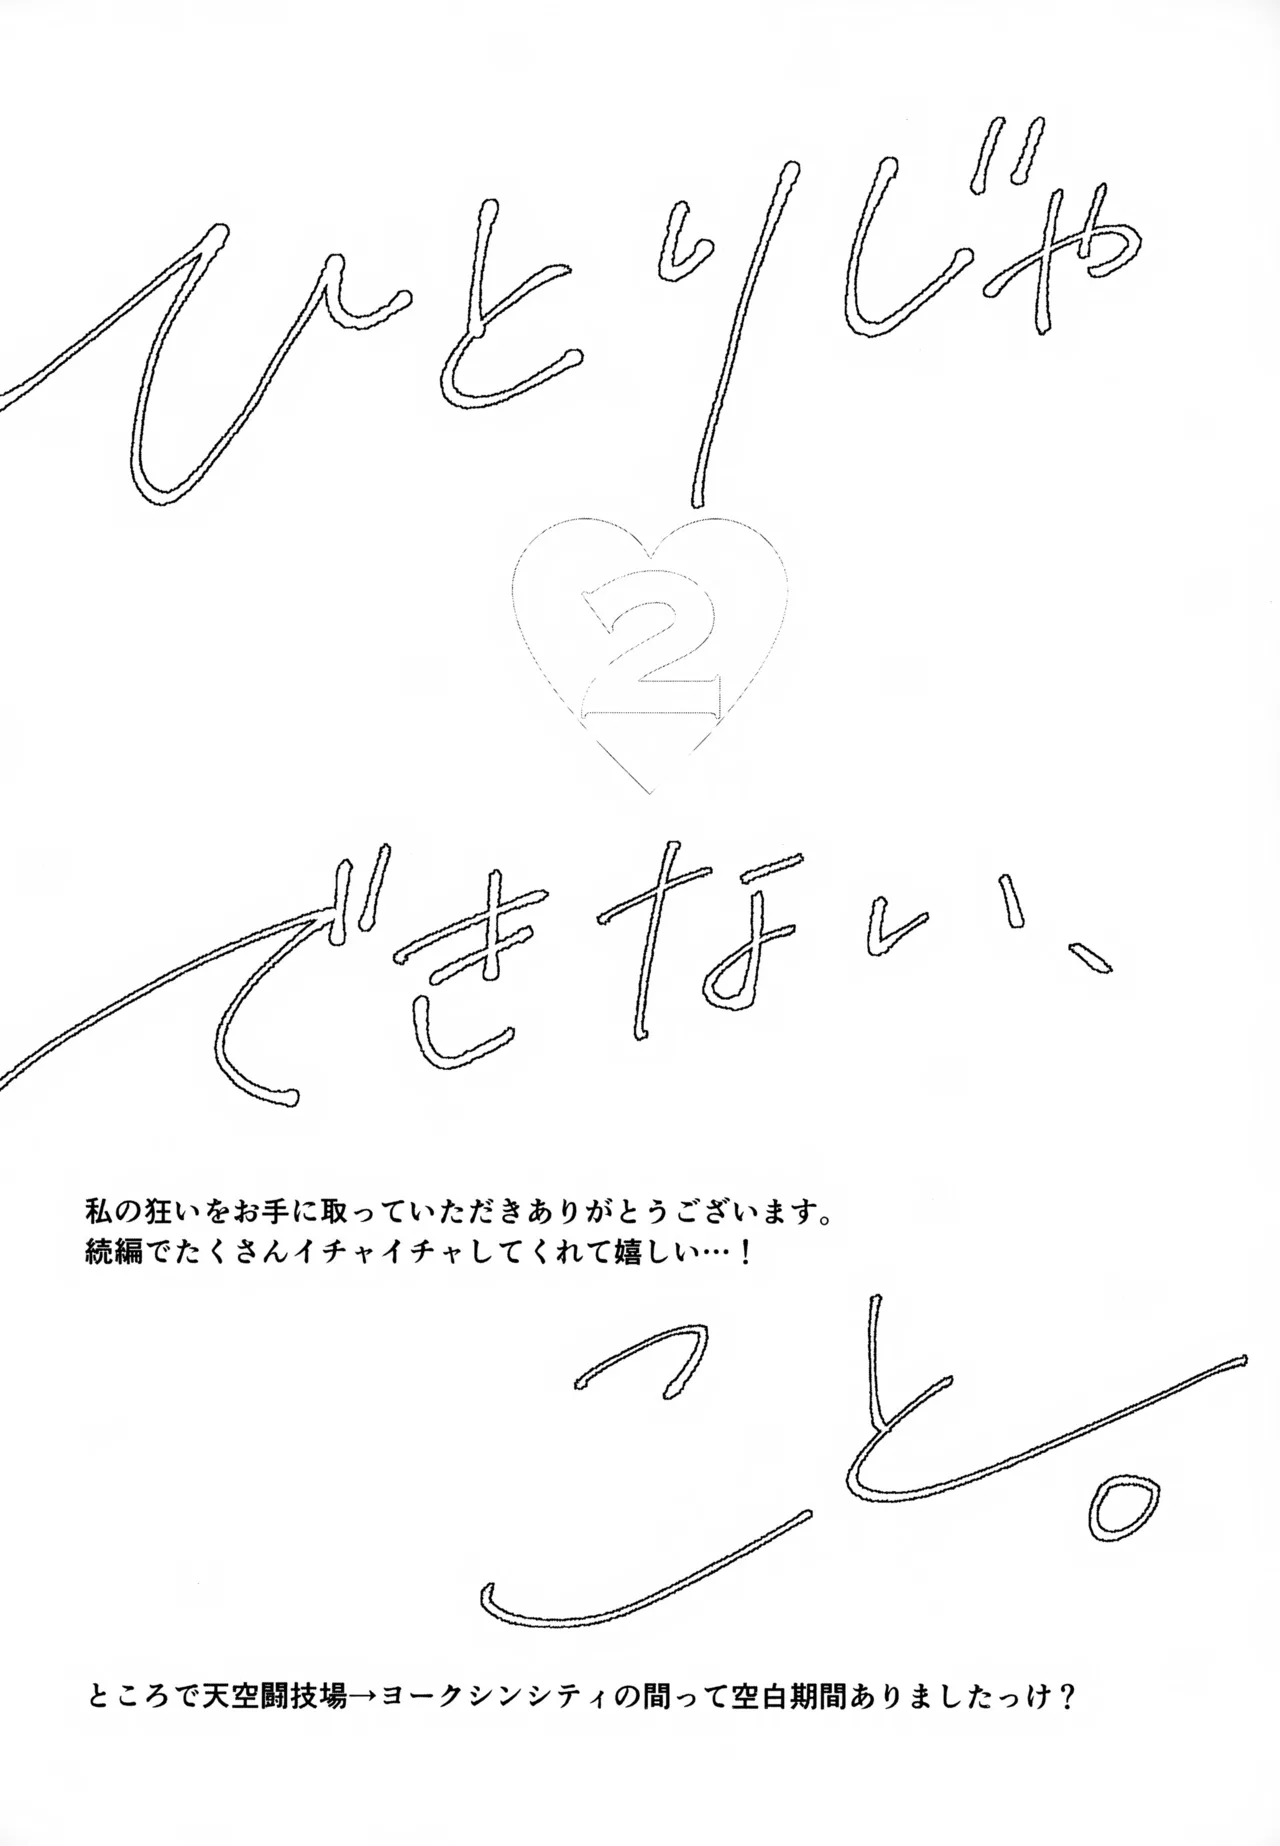 ひとりじゃ
2
できない、
私の狂いをお手に取っていただきありがとうございます。
続編でたくさんイチャイチャしてくれて嬉しい…！
こと。
ところで天空闘技場→ヨークシンシティの間って空白期間ありましたっけ？